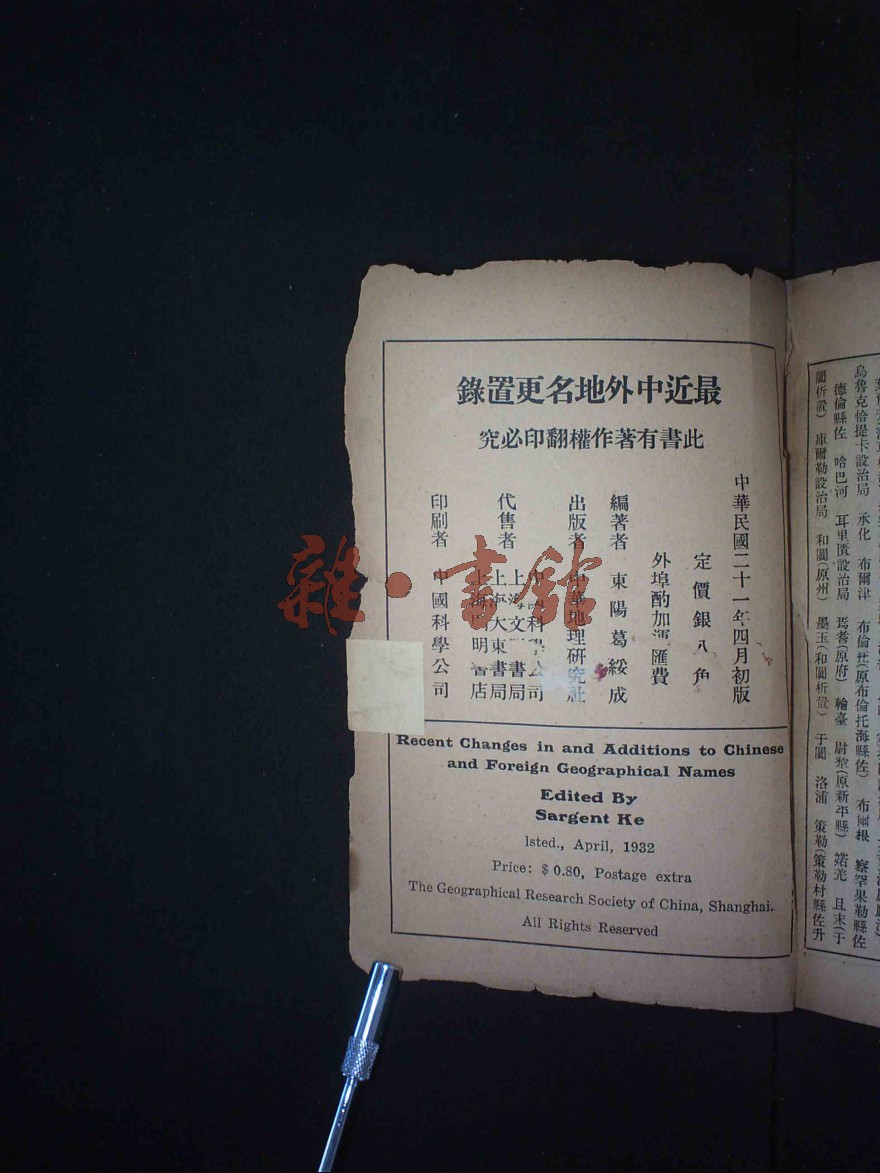 最近中外地名更置錄
此書有著作權翻印必究
中華民國二十一年四月初版
定價銀八角
外埠酌加匯費
編著者 東陽葛綏成
出版者 中華地理研究社
代售者
中科公司
上海文書局
上海大東書局
上海明書店
印刷者 中國科學公司
雜·書館
Recent Changes in and Additions to Chinese
and Foreign Geographical Names
Edited By
Sargent Ke
1sted., April, 1932
Price: $ 0.80, Postage extra
The Geographical Research Society of China, Shanghai.
All Rights Reserved
烏魯克恰提卡設治局 承化 布爾津 布倫托(原布倫托海縣佐) 布爾根 察罕果勒縣佐
德倫縣佐 哈巴河 耳里匱設治局 焉耆(原府) 輪臺 尉犂(原新平縣) 婼羌 且末(于
闐析置) 庫爾勒設治局 和闐(原州) 墨玉(和闐析置) 于闐 洛浦 策勒(策勒村縣佐升